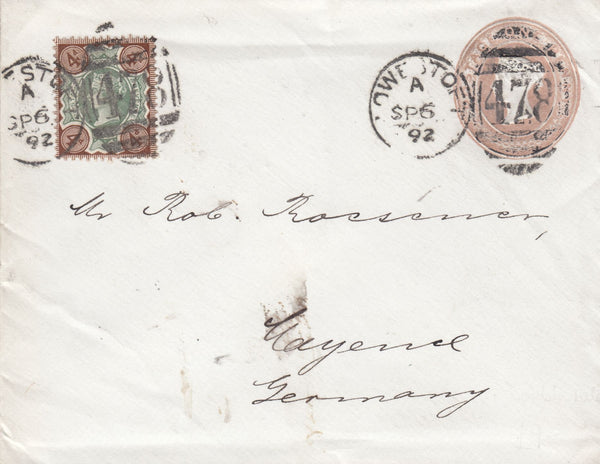 STO
A
SP6
92
4d
4d
4d
4d
LOWESTOFT
A
SP6
92
478
Mr Rob. Roessener,
Mayence
Germany